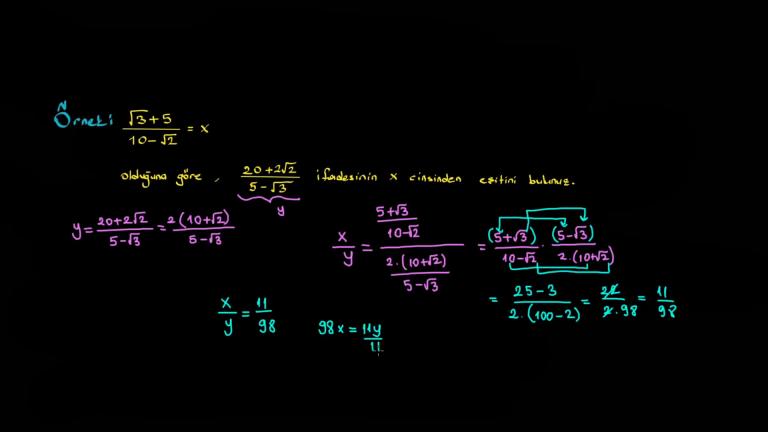 Örnek: (√3+5)/(10-√2) = x
olduğuna göre, (20+2√2)/(5-√3) ifadesinin x cinsinden eşitini bulunuz.
y
y = (20+2√2)/(5-√3) = 2(10+√2)/(5-√3)
x/y = ((5+√3)/(10-√2))/((2.(10+√2))/(5-√3)) = (5+√3)/(10-√2) . (5-√3)/(2.(10+√2))
= (25-3)/(2.(100-2)) = 22/(2.98) = 11/98
x/y = 11/98
98x = 11y
11